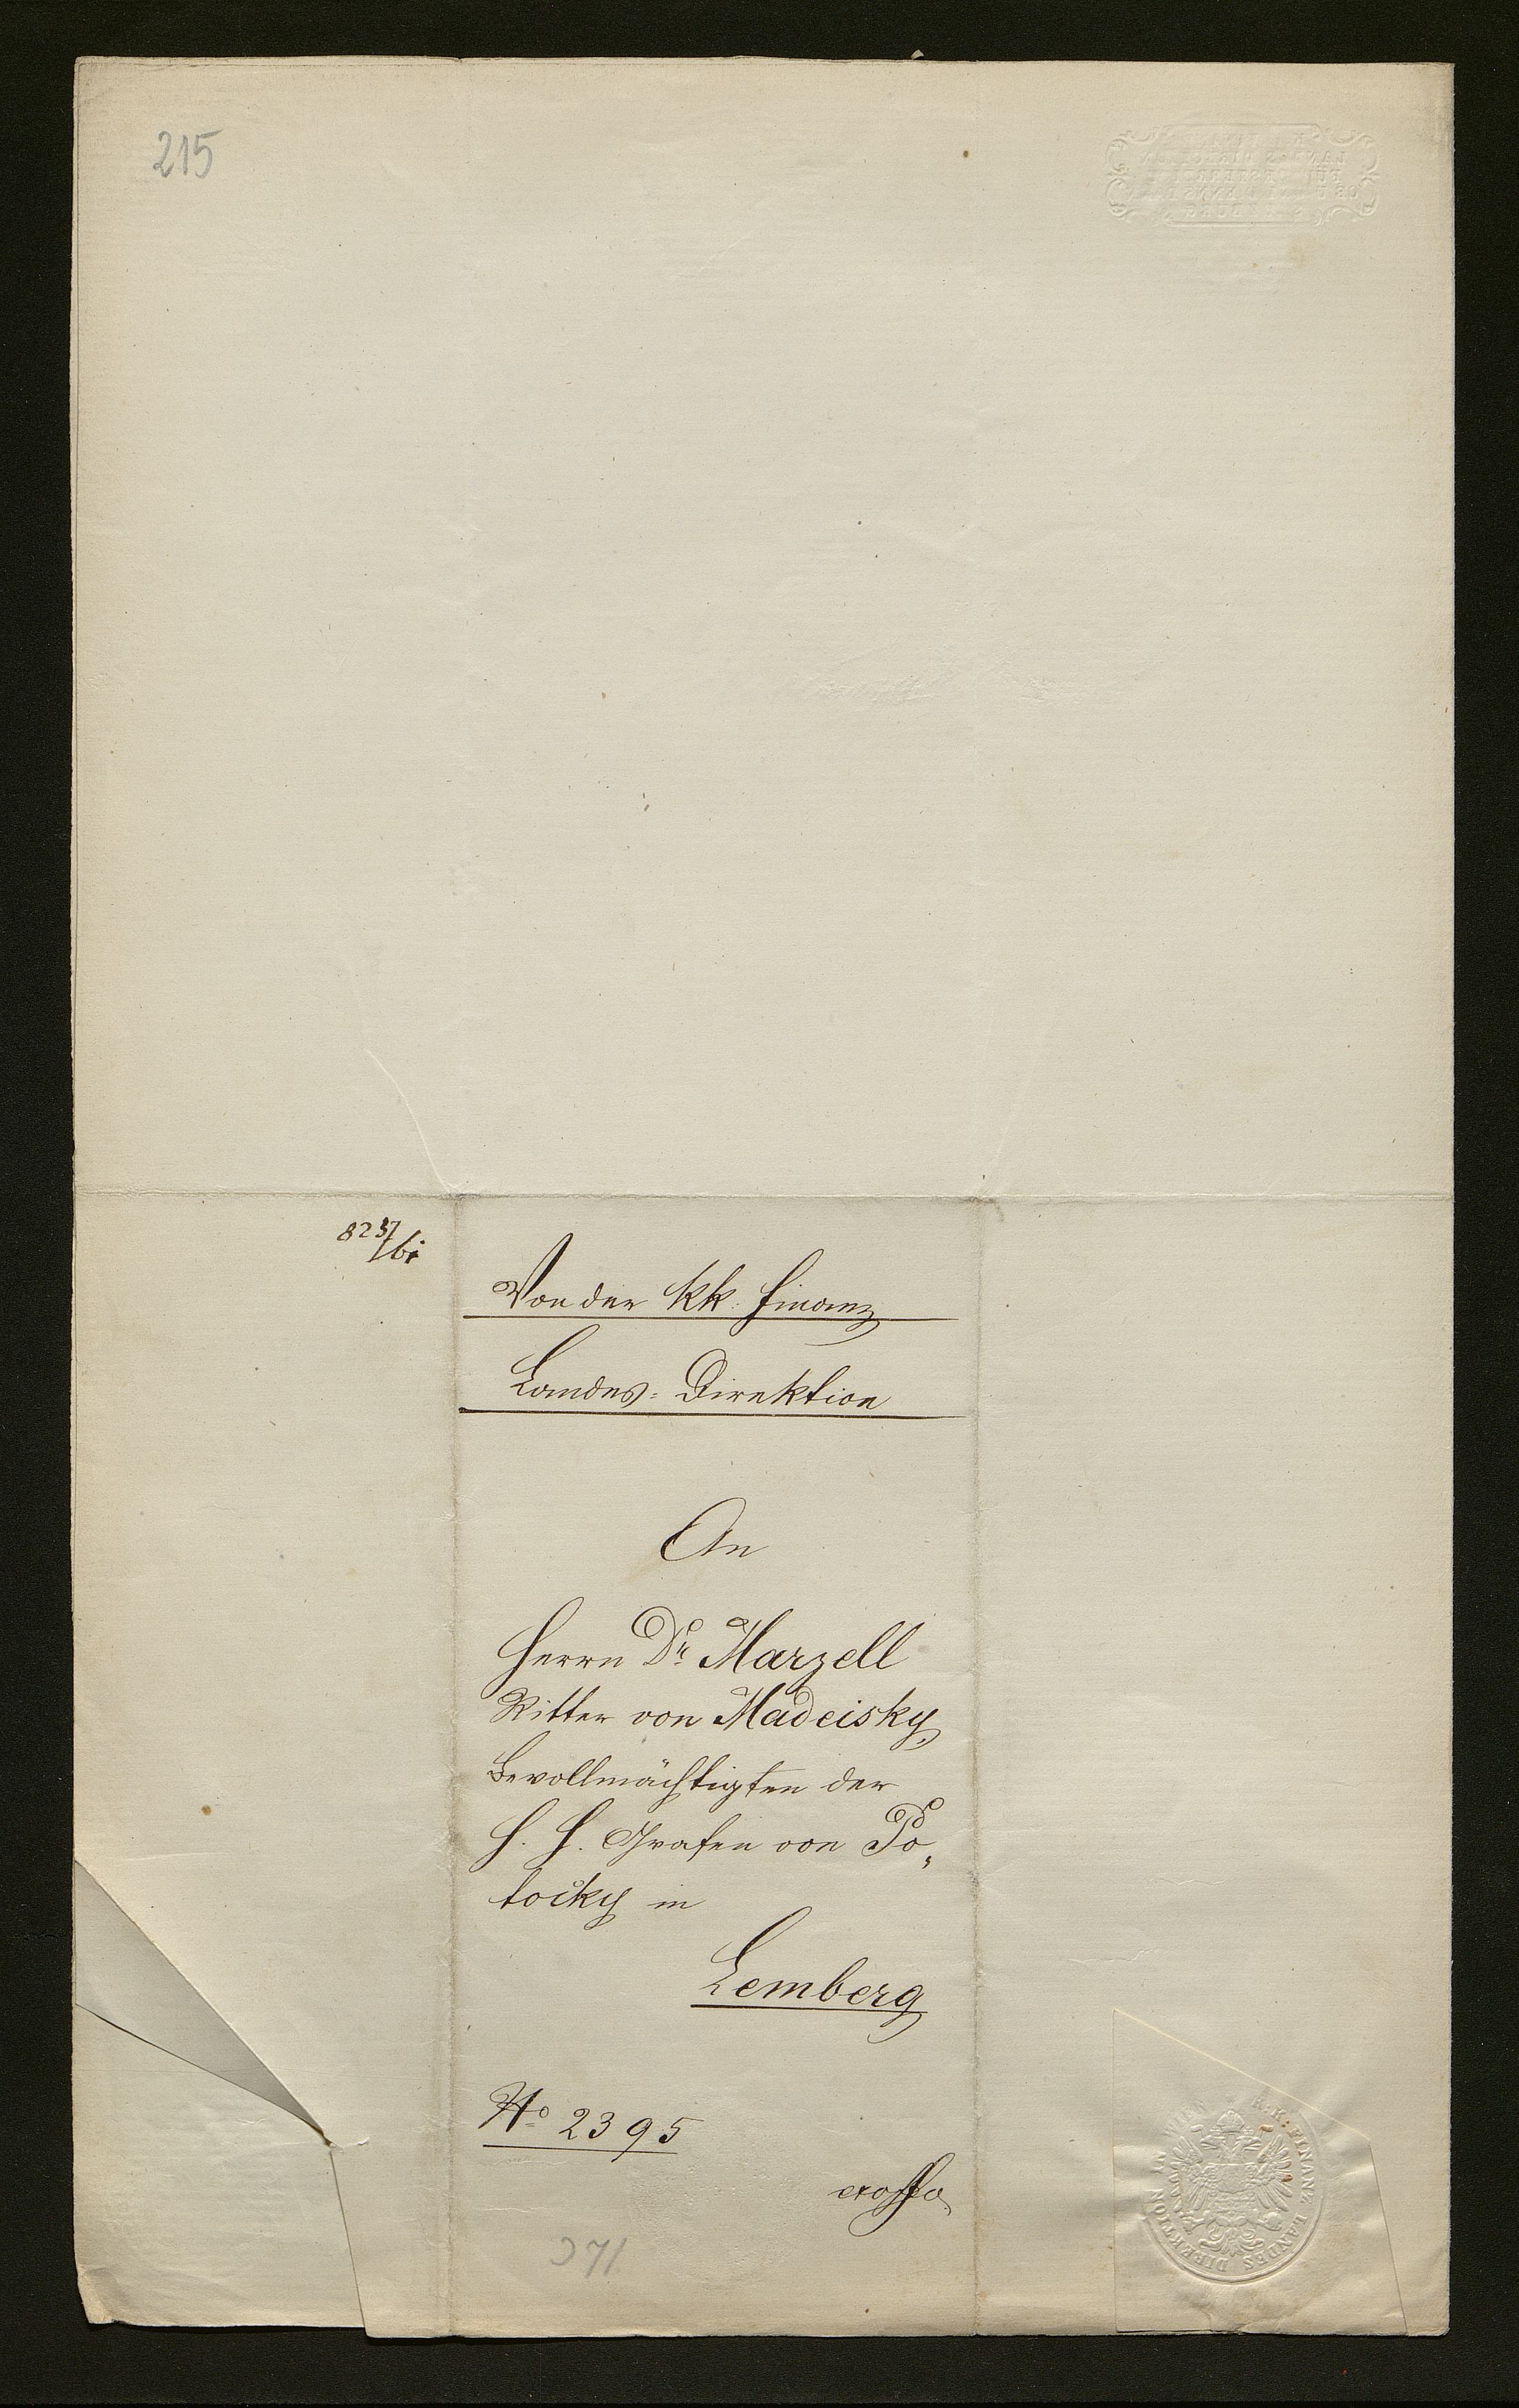 215
8237/bi
Von der kk: Finanz
Landes= Direktion
An
Herrn Dr. Marzell
Ritter von Madeisky,
Bevollmächtigten der
H. H. Grafen von Po„
tocky in
Lemberg
No 2395
ex offo
K. K. FINANZ LANDES DIREKTION IN WIEN